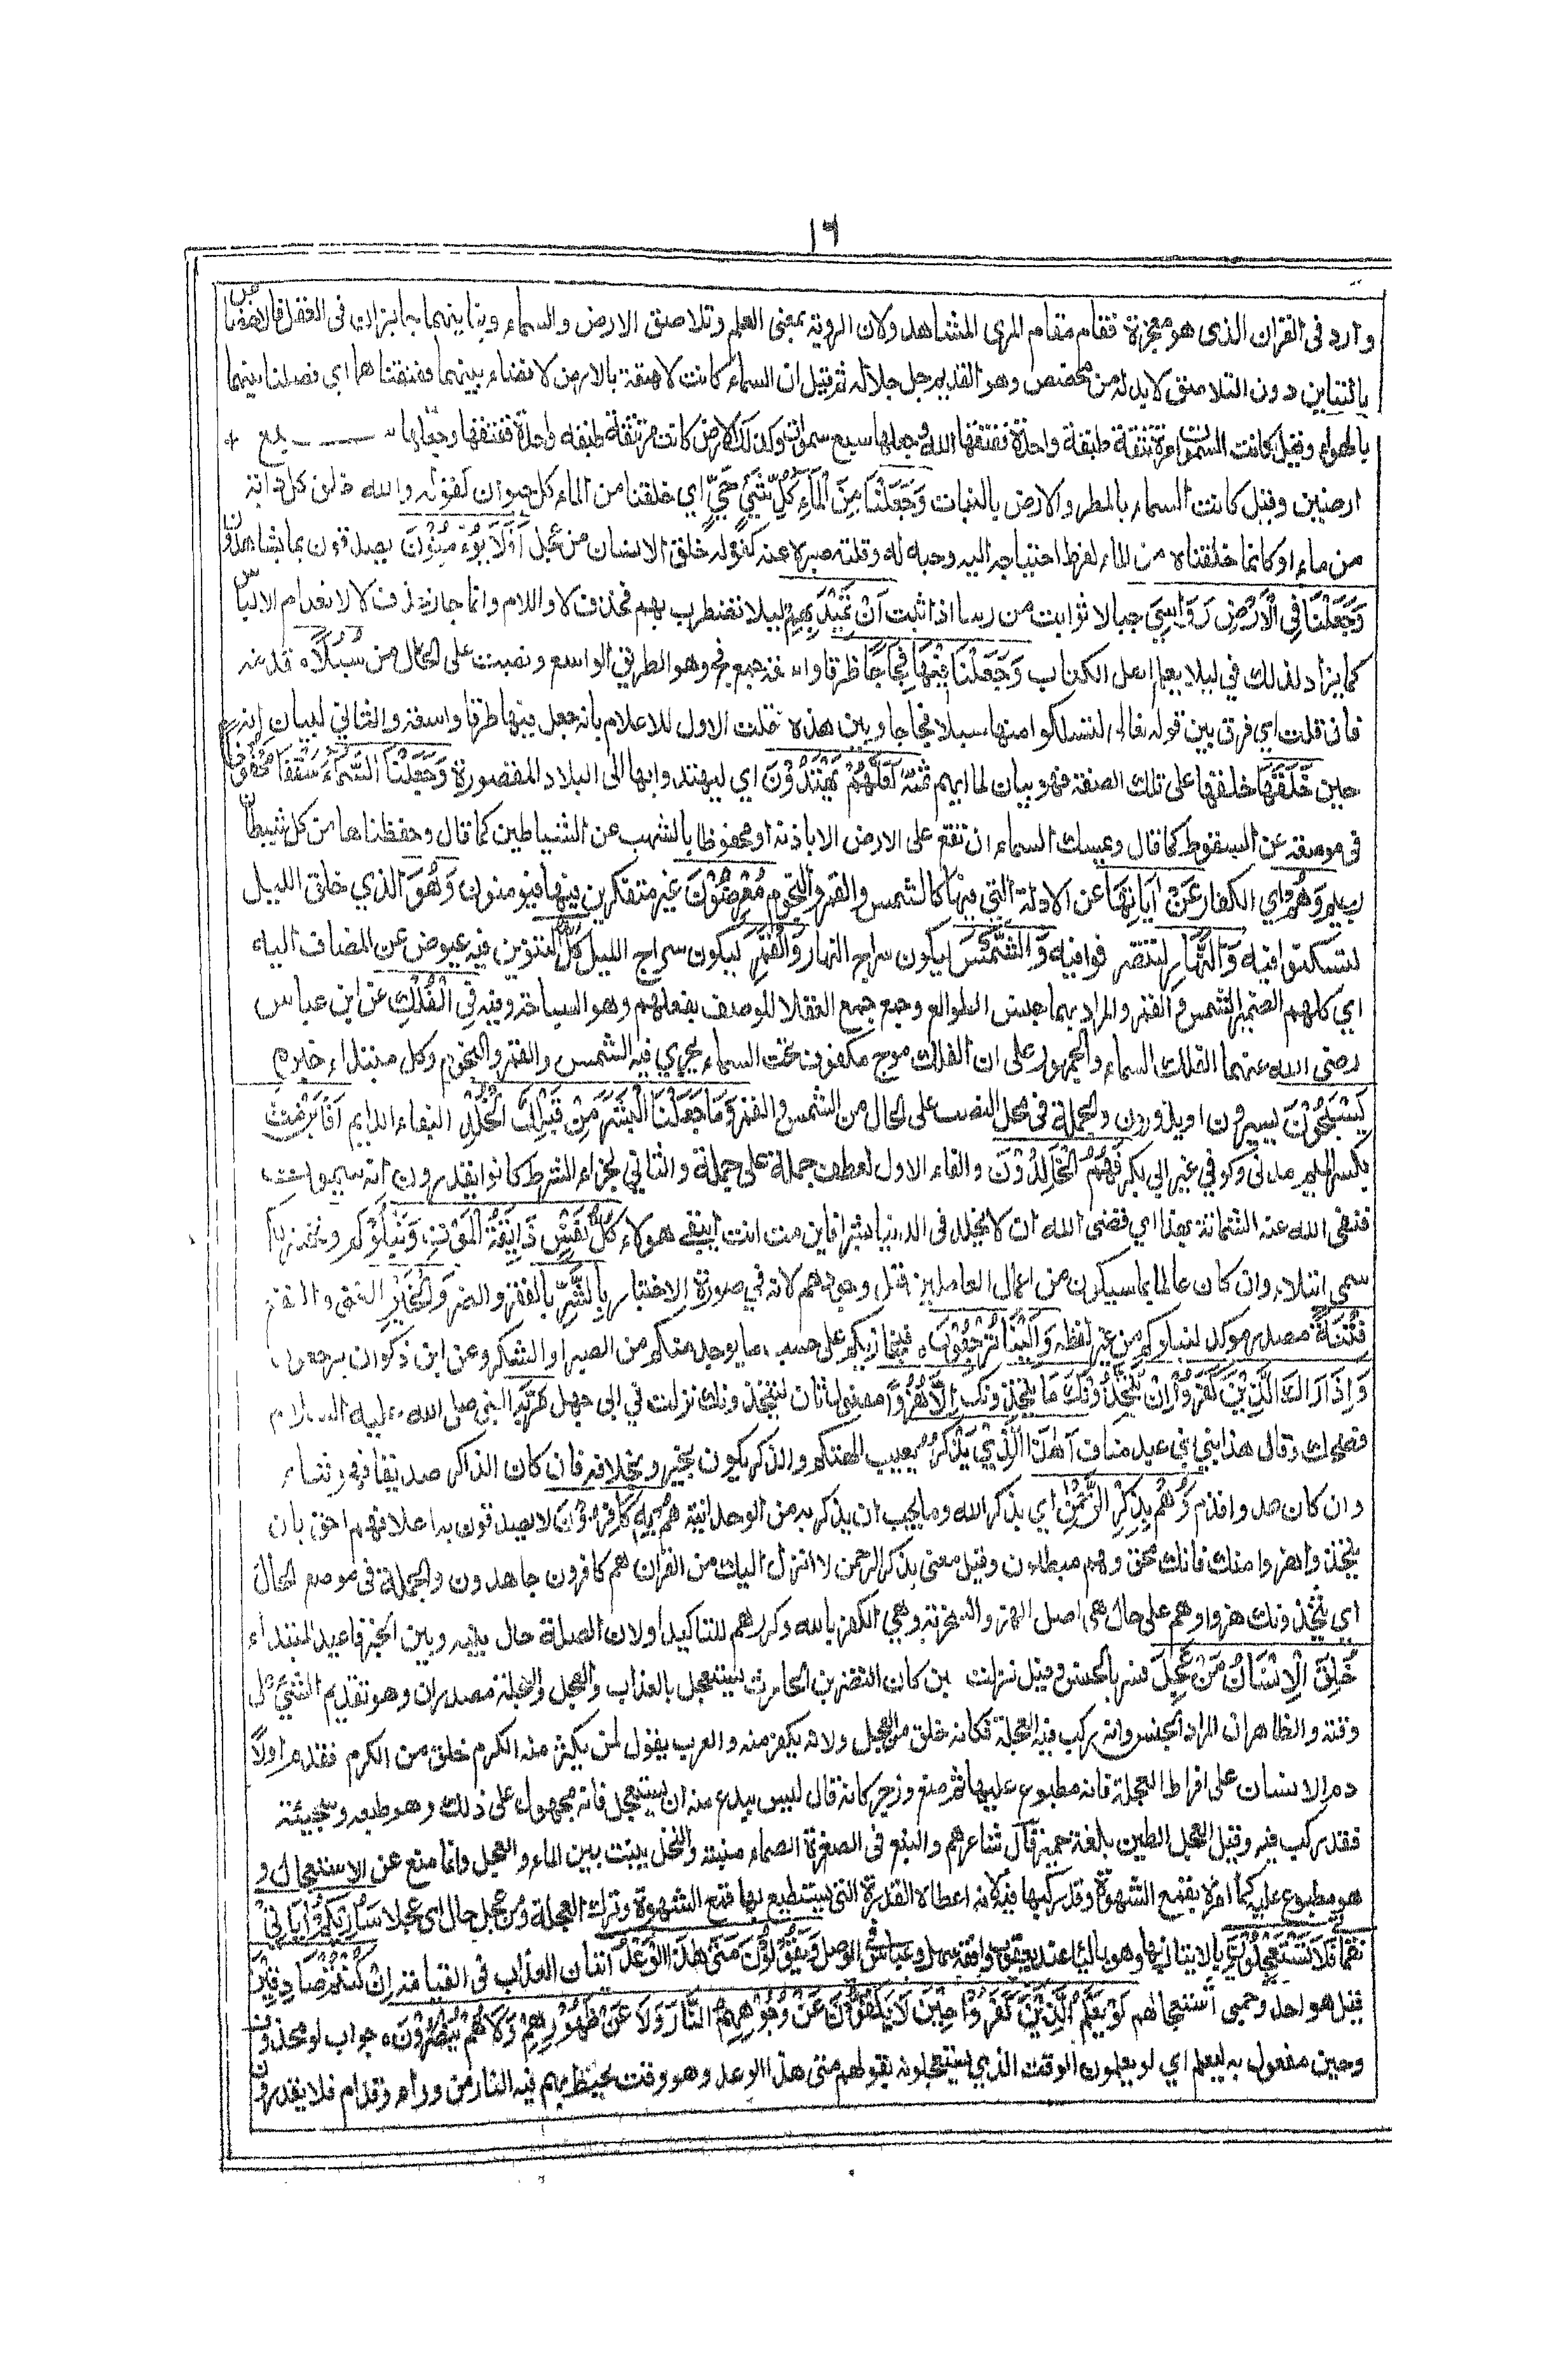 ١٦
وارد فى القران الذى هو معجزة فقام مقام المرى المشاهد ولان الروية بمعنى العلم وتلاصق الارض والسماء وتباينهما جايزان فى العقل فالاختصاص
بالتباين دون التلاصق لابد له من مخصص وهو القديم جل جلاله ثم قيل ان السماء كانت لاصقة بالارض لا فضاء بينهما ففتقناهما اى فصلنا بينهما
بالهواء وقيل كانت السموات مرتتقة طبقة واحدة ففتقها الله وجعلها سبع سموات وكذلك الارض كانت مرتتقة طبقة واحدة ففتقها وجعلها سبع
ارضين وقيل كانت السماء بالمطر والارض بالنبات وَجَعَلْنَا مِنَ الْمَاءِ كُلَّ شَيْءٍ حَيٍّ اي خلقنا من الماء كل حيوان كقوله والله خلق كل دابة
من ماء او كانما خلقناه من الماء لفرط احتياجه اليه وحبه له وقلة صبره عنه كقوله خلق الانسان من عجل أَفَلَا يُؤْمِنُونَ يصدقون بما يشاهدون
وَجَعَلْنَا فِي الْأَرْضِ رَوَاسِيَ جبالا ثوابت من رسا اذا ثبت أَنْ تَمِيدَ بِهِمْ ليلا تضطرب بهم فحذف لا واللام وانما جاز حذف لا لانعدام الالباس
كما يزاد لذلك في ليلا يعلم اهل الكتاب وَجَعَلْنَا فِيهَا فِجَاجًا طرقا واسعة جمع فج وهو الطريق الواسع ونصبت على الحال من سُبُلًا ه قدمه
فان قلت اي فرق بين قوله تعالى لتسلكوا منها سبلا فجاجا وبين هذه قلت الاول للاعلام بانه جعل فيها طرقا واسعة والثاني لبيان انه
حين خَلَقَهَا خلقها على تلك الصفة فهو بيان لما ابهم ثمه لَعَلَّهُمْ يَهْتَدُونَ اي ليهتدوا بها الى البلاد المقصورة وَجَعَلْنَا السَّمَاءَ سَقْفًا مَحْفُوظًا
فى موضعه عن السقوط كما قال ويمسك السماء ان تقع على الارض الا باذنه او محفوظا بالشهب عن الشياطين كما قال وحفظناها من كل شيطان
رجيم وَهُمْ اي الكفار عَنْ آيَاتِهَا عن الادلة التي فيها كالشمس والقمر والنجوم مُعْرِضُونَ غير متفكرين فيها فيومنون وَهُوَ الذي خلق الليل
لتسكنوا فيه وَالنَّهَارَ لتتصرفوا فيه وَالشَّمْسَ ليكون سراج النهار وَالْقَمَرَ ليكون سراج الليل كُلٌّ التنوين فيه عوض عن المضاف اليه
اي كلهم الضمير للشمس والقمر والمراد بهما جنس الطوالع وجمع جمع العقلا للوصف بفعلهم وهو السباحة وفيه فِي الْفَلَكِ عن ابن عباس
رضى الله عنهما الفلك السماء والجمهور على ان الفلك موج مكفوف تحت السماء يجري فيه الشمس والقمر والنجوم وكل مبتداء خبره
يَسْبَحُونَ يسيرون او يدورون والجملة فى محل النصب على الحال من الشمس والقمر وَمَا جَعَلْنَا لِبَشَرٍ مِّنْ قَبْلِكَ الْخُلْدَ البقاء الدايم أَفَإِنْ مِتَّ
بكسر الميم مدنى وكوفي غير ابي بكر فَهُمُ الْخَالِدُونَ والفاء الاول لعطف جملة على جملة والثاني لجزاء الشرط كانوا يقدرون انه سيموت
فنفى الله عنه الشماتة بهذا اي قضى الله ان لا يخلد فى الدنيا بشرا فاين مت انت ايبقى هولاء كُلُّ نَفْسٍ ذَائِقَةُ الْمَوْتِ وَنَبْلُوكُمْ ونختبركم
سمى ابتلاء وان كان عالما بما سيكون من اعمال العاملين قبل وجودهم لانه في صورة الاختبار بِالشَّرِّ بالفقر والضر وَالْخَيْرِ الغنى والنفع
فِتْنَةً مصدر موكد لنبلوكم من غير لفظه وَإِلَيْنَا تُرْجَعُونَ ه فنجازيكم على حسب ما يوجد منكم من الصبر او الشكر وعن ابن ذكوان يرجعون
وَإِذَا رَآكَ الَّذِينَ كَفَرُوا إِنْ يَتَّخِذُونَكَ ما يتخذونك إِلَّا هُزُوًا مفعول ثان ليتخذونك نزلت في ابى جهل مر به النبى صلى الله عليه السلام
فضحك وقال هذا نبي بني عبد مناف أَهَذَا الَّذِي يَذْكُرُ يعيب الهتكم والذكر يكون بخير وبخلافه فان كان الذاكر صديقا فهو ثناء
وان كان عدوا فذم وَهُمْ بِذِكْرِ الرَّحْمَنِ اي بذكر الله وما يجب ان يذكر به من الوحدانية هُمْ كَافِرُونَ لا يصدقون به اصلا فهم احق بان
يتخذوا هزوا منك فانك محق وهم مبطلون وقيل معنى بذكر الرحمن لا انزل اليك من القران هم كافرون جاهدون والجملة فى موضع الحال
اي يتخذونك هزوا وهم على حال هى اصل الهزء والسخرية وهي الكفر بالله وكرر هم للتاكيد او لان الصلة حال بينه وبين الخبر فاعيد المبتداء
خُلِقَ الْإِنْسَانُ مِنْ عَجَلٍ فسر بالجنس وقيل نزلت بن كان النضر بن الحارث يستعجل بالعذاب والعجل والعجلة مصدران وهو تقديم الشئ على
وقته والظاهر ان المراد الجنس وانه ركب فيه العجلة فكانه خلق من العجل ولانه يكثر منه والعرب يقول لمن يكثر منه الكرم خلق من الكرم فقدم اولا
ذم الانسان على افراط العجلة فانه مطبوع عليها ثم منع وزجر كانه قال ليس ببدع منه ان يستعجل فانه مجهول على ذلك وهو طبعه وسجيته
فقد ركب فيه وقيل العجل الطين بلغة حمير قال شاعرهم والنبع فى الصخرة الصماء منبته والنخل ينبت بين الماء والعجل وانما منع عن الاستعجال و
هو مطبوع عليه كما امره بقمع الشهوة وقد ركبها فيه لانه اعطاه القدرة التى يستطيع بها قمع الشهوة وترك العجلة ومن عجل حال اى عجلا سَأُرِيكُمْ آيَاتِي
نقماتي فَلَا تَسْتَعْجِلُونِ بالاتيان بها وهو بالياء عند يعقوب وافقه سهل وعباس في الوصل وَيَقُولُونَ مَتَى هَذَا الْوَعْدُ اتيان العذاب فى القيامة إِنْ كُنْتُمْ صَادِقِينَ
قيل هو احد وجهى استعجالهم لَوْ يَعْلَمُ الَّذِينَ كَفَرُوا حِينَ لَا يَكُفُّونَ عَنْ وُجُوهِهِمُ النَّارَ وَلَا عَنْ ظُهُورِهِمْ وَلَا هُمْ يُنْصَرُونَ ه جواب لو محذوف
وحين مفعول به ليعلم اي لو يعلمون الوقت الذي يستعجلونه بقولهم متى هذا الوعد وهو وقت يحيط بهم فيه النار من وراء وقدام فلا يقدرون